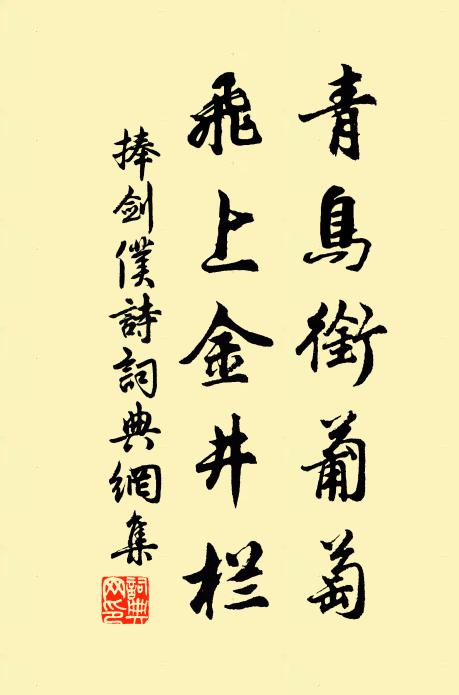 青鳥銜葡萄
飛上金井栏
捧劍僕詩詞典網集
詞典网印